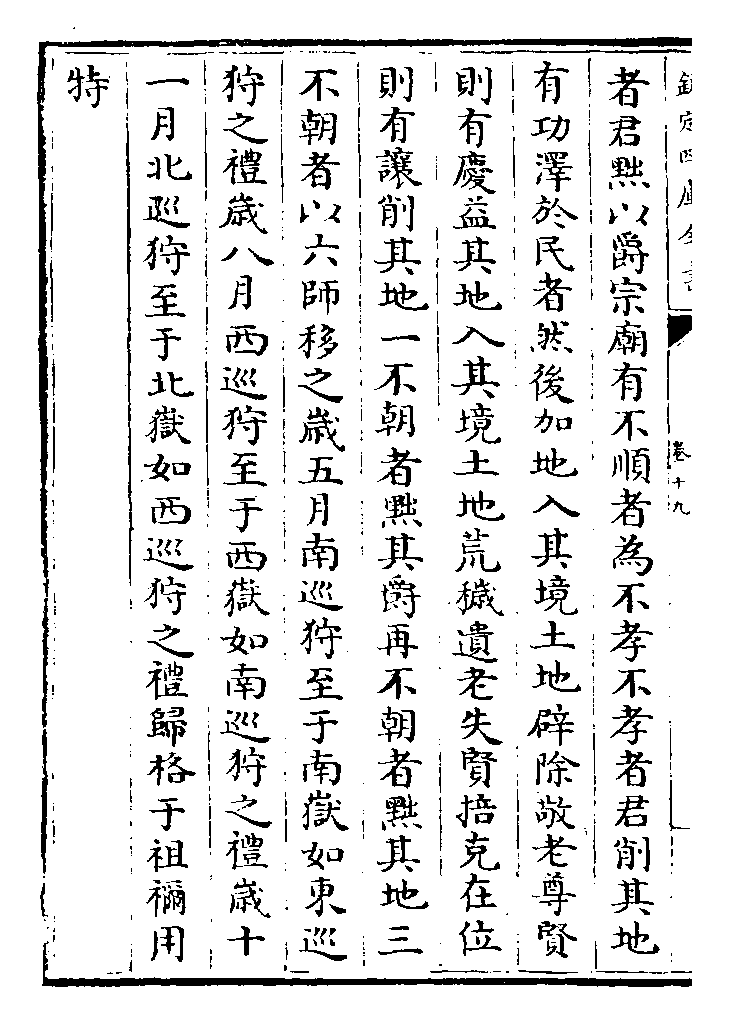 欽定四庫全書
卷十九
者君黜以爵宗廟有不順者為不孝不孝者君削其地
有功澤於民者然後加地入其境土地辟除敬老尊賢
則有慶益其地入其境土地荒穢遺老失賢掊克在位
則有讓削其地一不朝者黜其爵再不朝者黜其地三
不朝者以六師移之歲五月南巡狩至于南嶽如東巡
狩之禮歲八月西巡狩至于西嶽如南巡狩之禮歲十
一月北巡狩至于北嶽如西巡狩之禮歸格于祖禰用
特